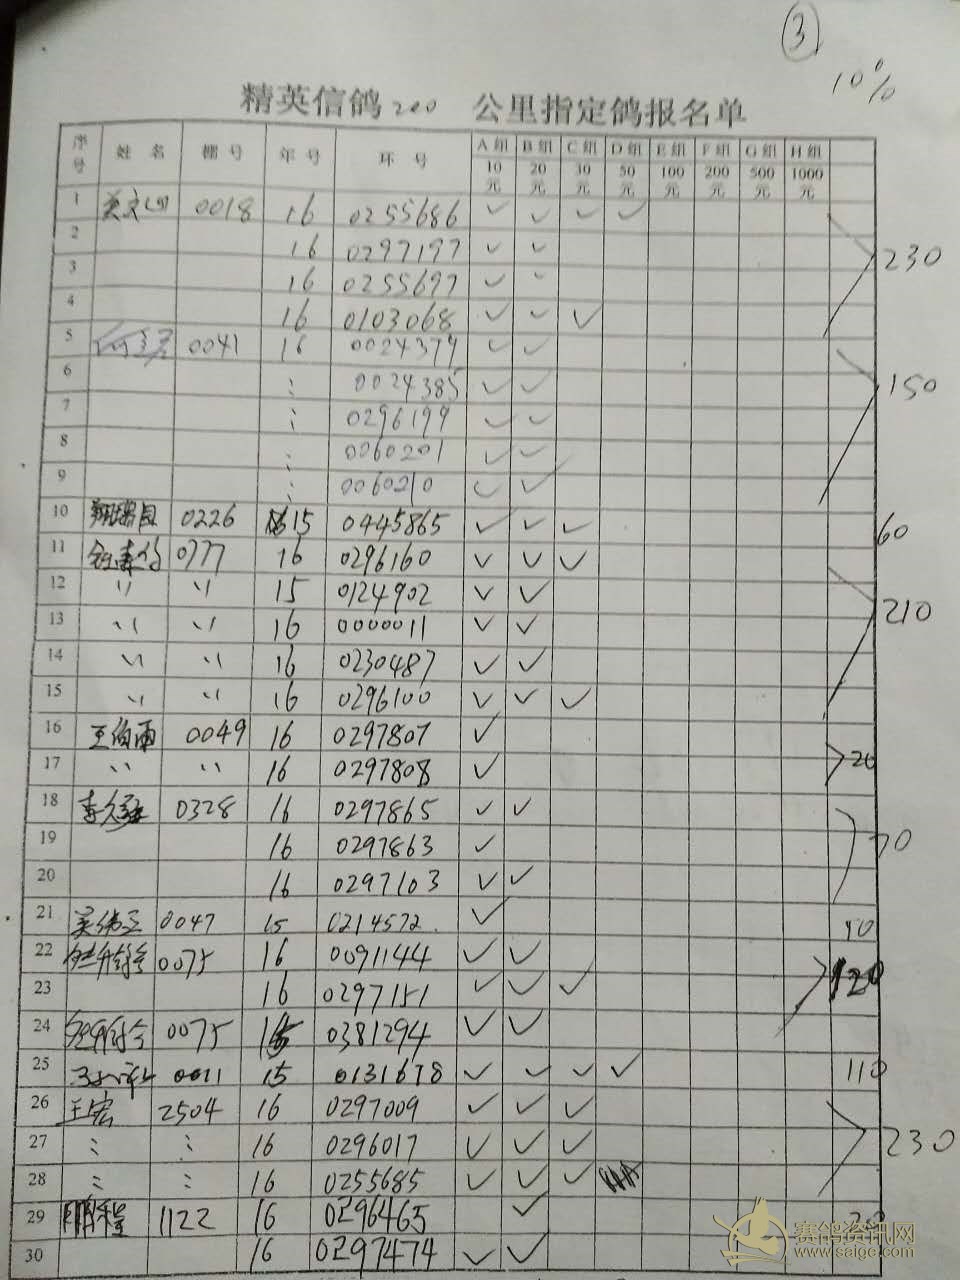 ③
10%
精英信鸽200 公里指定鸽报名单
序号 姓 名 棚 号 年 号 环 号 A组 B组 C组 D组 E组 F组 G组 H组
10元 20元 30元 50元 100元 200元 500元 1000元
1 0018 16 0255686 ✓ ✓ ✓ ✓
2 16 0297197 ✓ ✓ 230
3 16 0255697 ✓ ✓
4 16 0103068 ✓ ✓ ✓
5 0041 16 0024379 ✓ ✓
6 0024385 ✓ ✓ 150
7 0296199 ✓ ✓
8 0060201 ✓ ✓
9 0060210 ✓ ✓
10 0226 15 0445865 ✓ ✓ ✓ 60
11 0777 16 0296160 ✓ ✓ ✓
12 〃 〃 15 0124902 ✓ ✓ 210
13 〃 〃 16 0000011 ✓ ✓
14 〃 〃 16 0230487 ✓ ✓
15 〃 〃 16 0296100 ✓ ✓ ✓
16 王伯雨 0049 16 0297807 ✓
17 〃 〃 16 0297808 ✓ 20
18 0328 16 0297865 ✓ ✓
19 16 0297863 ✓ 70
20 16 0297103 ✓ ✓
21 0047 15 0214572 ✓ 10
22 0075 16 0091144 ✓ ✓
23 16 0297151 ✓ ✓ ✓ 120
24 0075 15 0381294 ✓ ✓
25 0011 15 0131678 ✓ ✓ ✓ ✓ 110
26 王宏 2504 16 0297009 ✓ ✓ ✓
27 16 0296017 ✓ ✓ ✓ 230
28 16 0255685 ✓ ✓ ✓
29 鹏程 1122 16 0296465 ✓
30 16 0297474 ✓ ✓
赛鸽资讯网
www.saige.com